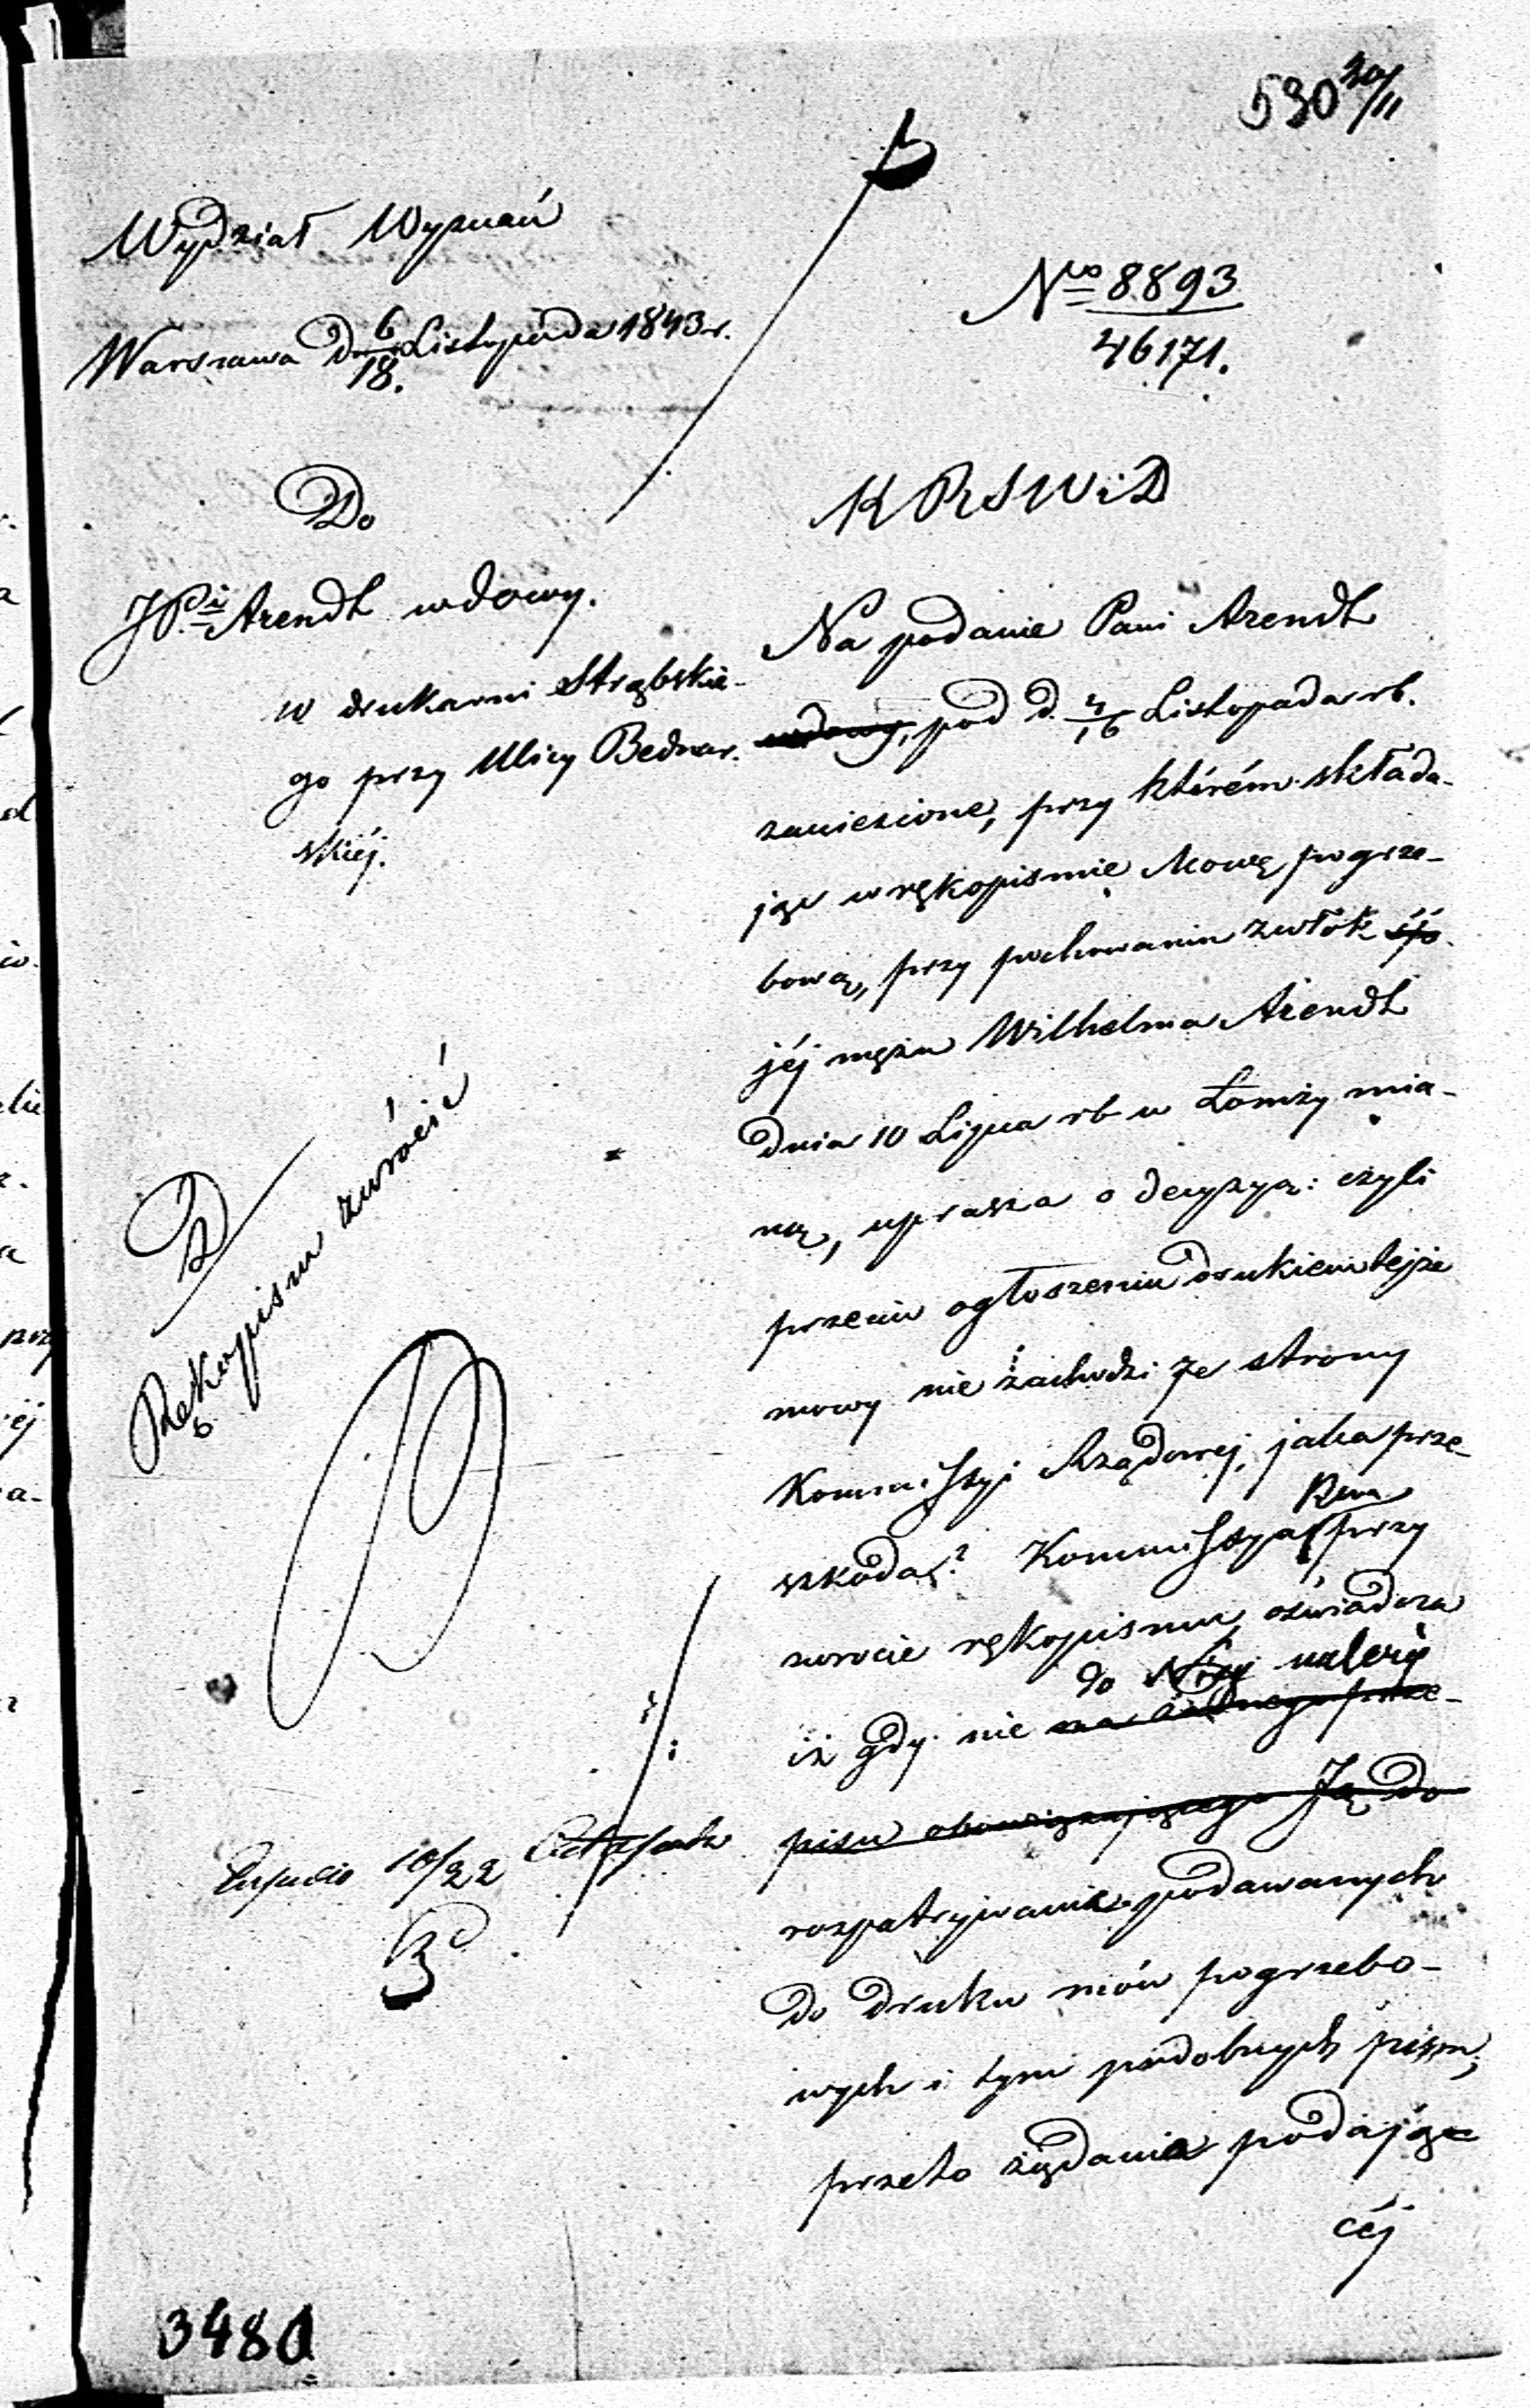 530 20/11
Wydział Wyznań
Warszawa d. 6/18. Listopada 1843 r.
Nro 8893
46171.
Do
JPi Arendt wdowy.
w drukarni Strąbskie-
go przy Ulicy Bednar-
skiéj.
Rękopism zwrócić
10/22
3480
KRSWiD
Na podanie Pani Arendt
wdowy, pod d. 4/16 Listopada rb.
zaniesione, przy którém składa-
jąc w rękopismie Mowę pogrze-
bową, przy pochowaniu zwłok
jéj mężu Wilhelma Arendt
dnia 10 Lipca rb w Łomży mia-
ną, uprasza o decyzyą: czyli
przeciw ogłoszeniu drukiem tejże
mowy nie zachodzi ze strony
Kommissyi Rządowej, jaka prze-
szkoda? Kommissya Rzwa przy
zwrocie rękopismu, oświadcza
iż gdy nie do Niej należy
ma żadnego prze-
pisu obowiązującego Ją do
rozpatrywanie podawanych
do druku mów pogrzebo-
wych i tym podobnych pism;
przeto żądania podając
céj